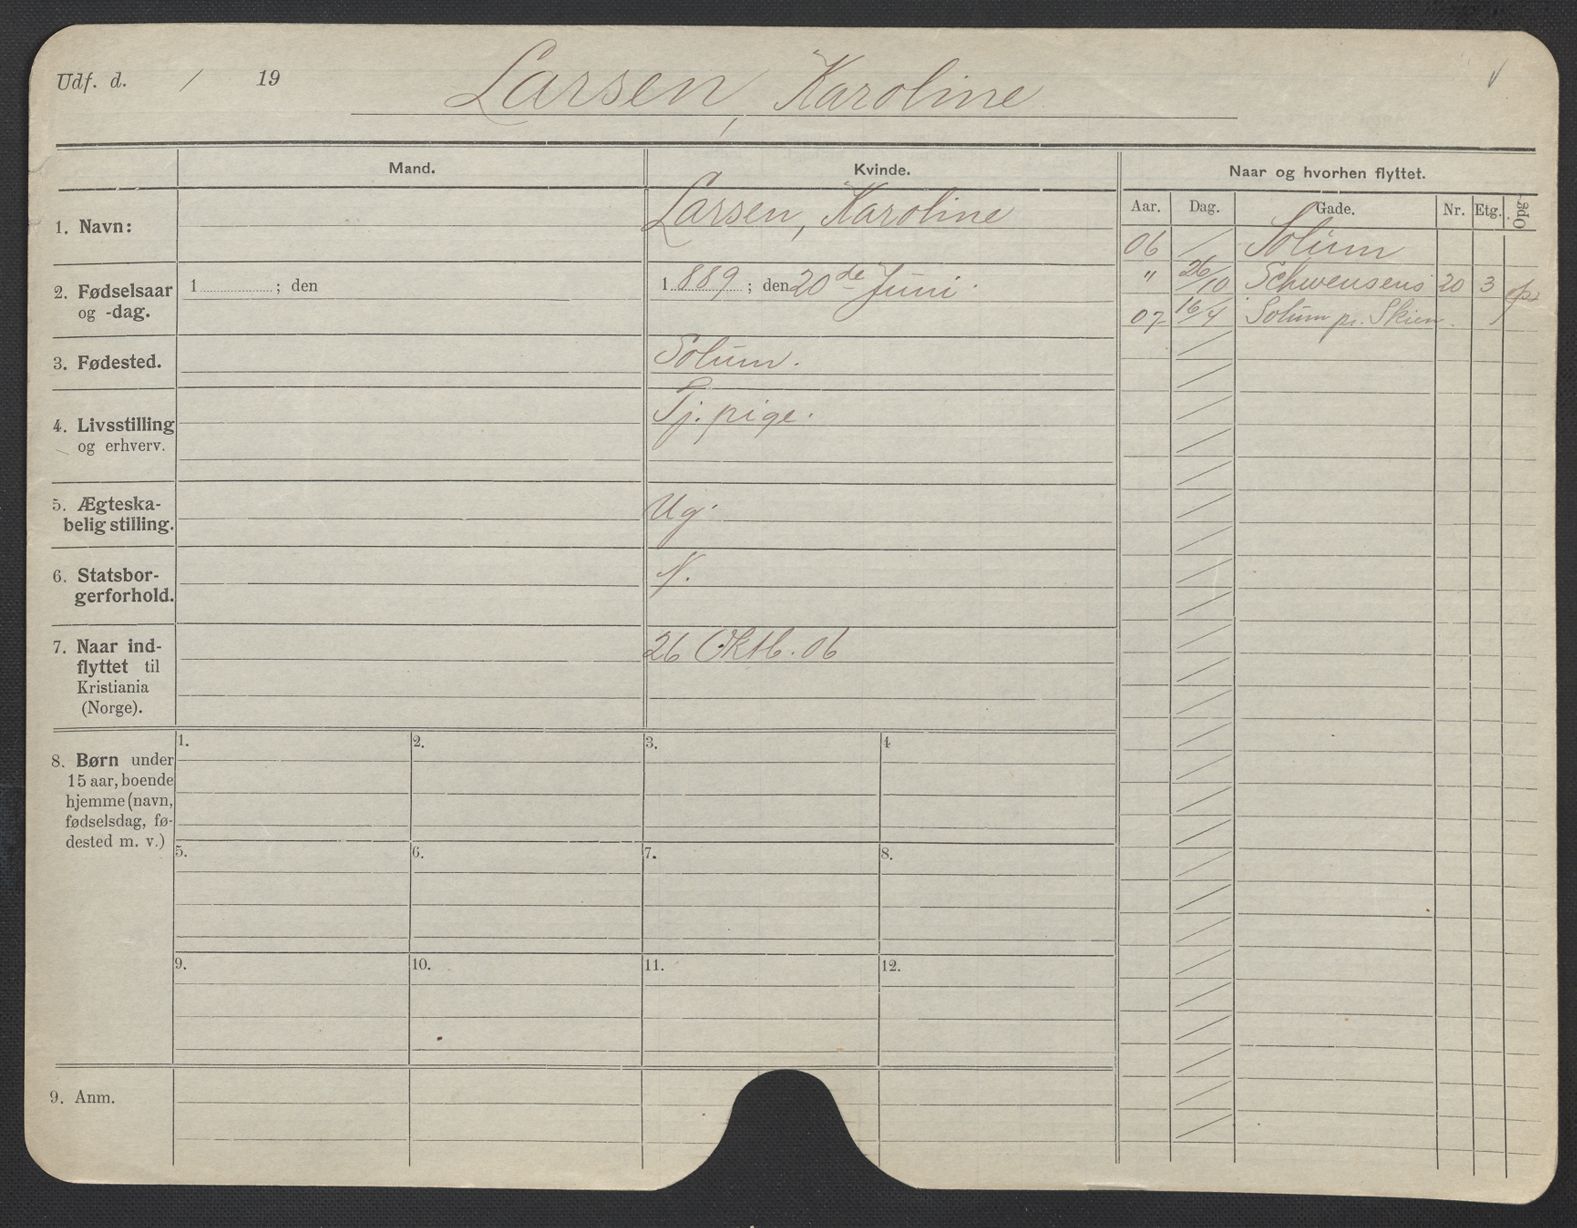 Udf. d. / 19
Larsen, Karoline
Mand.
Kvinde.
Naar og hvorhen flyttet.
Aar. Dag. Gade. Nr. Etg. Opg.
1. Navn:
Larsen, Karoline
06 / Solum
" 26/10 Schwensens 20 3
07 16/4 Solum pr. Skien.
2. Fødselsaar
og -dag.
1 ; den
1 889 ; den 20de Juni.
3. Fødested.
Solum.
4. Livsstilling
og erhverv.
Tj. pige.
5. Ægteska-
belig stilling.
Ug.
6. Statsbor-
gerforhold.
N.
7. Naar ind-
flyttet til
Kristiania
(Norge).
26 Oktb. 06
8. Børn under
15 aar, boende
hjemme (navn,
fødselsdag, fø-
dested m. v.)
1. 2. 3. 4
5. 6. 7. 8.
9. 10. 11. 12.
9. Anm.